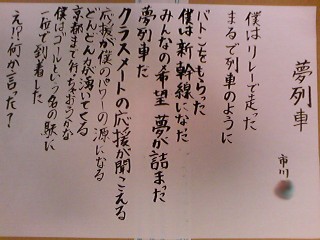 夢列車
市川
僕はリレーで走った
まるで列車のように
バトンをもらった
僕は新幹線になった
みんなの希望 夢が詰まった
夢列車だ
クラスメートの応援が聞こえる
応援が僕のパワーの源になる
どんどん力が湧いてくる
京都まで行っちゃおうかな
僕はゴールという名の駅に
一位で到着した
え!?何か言った?